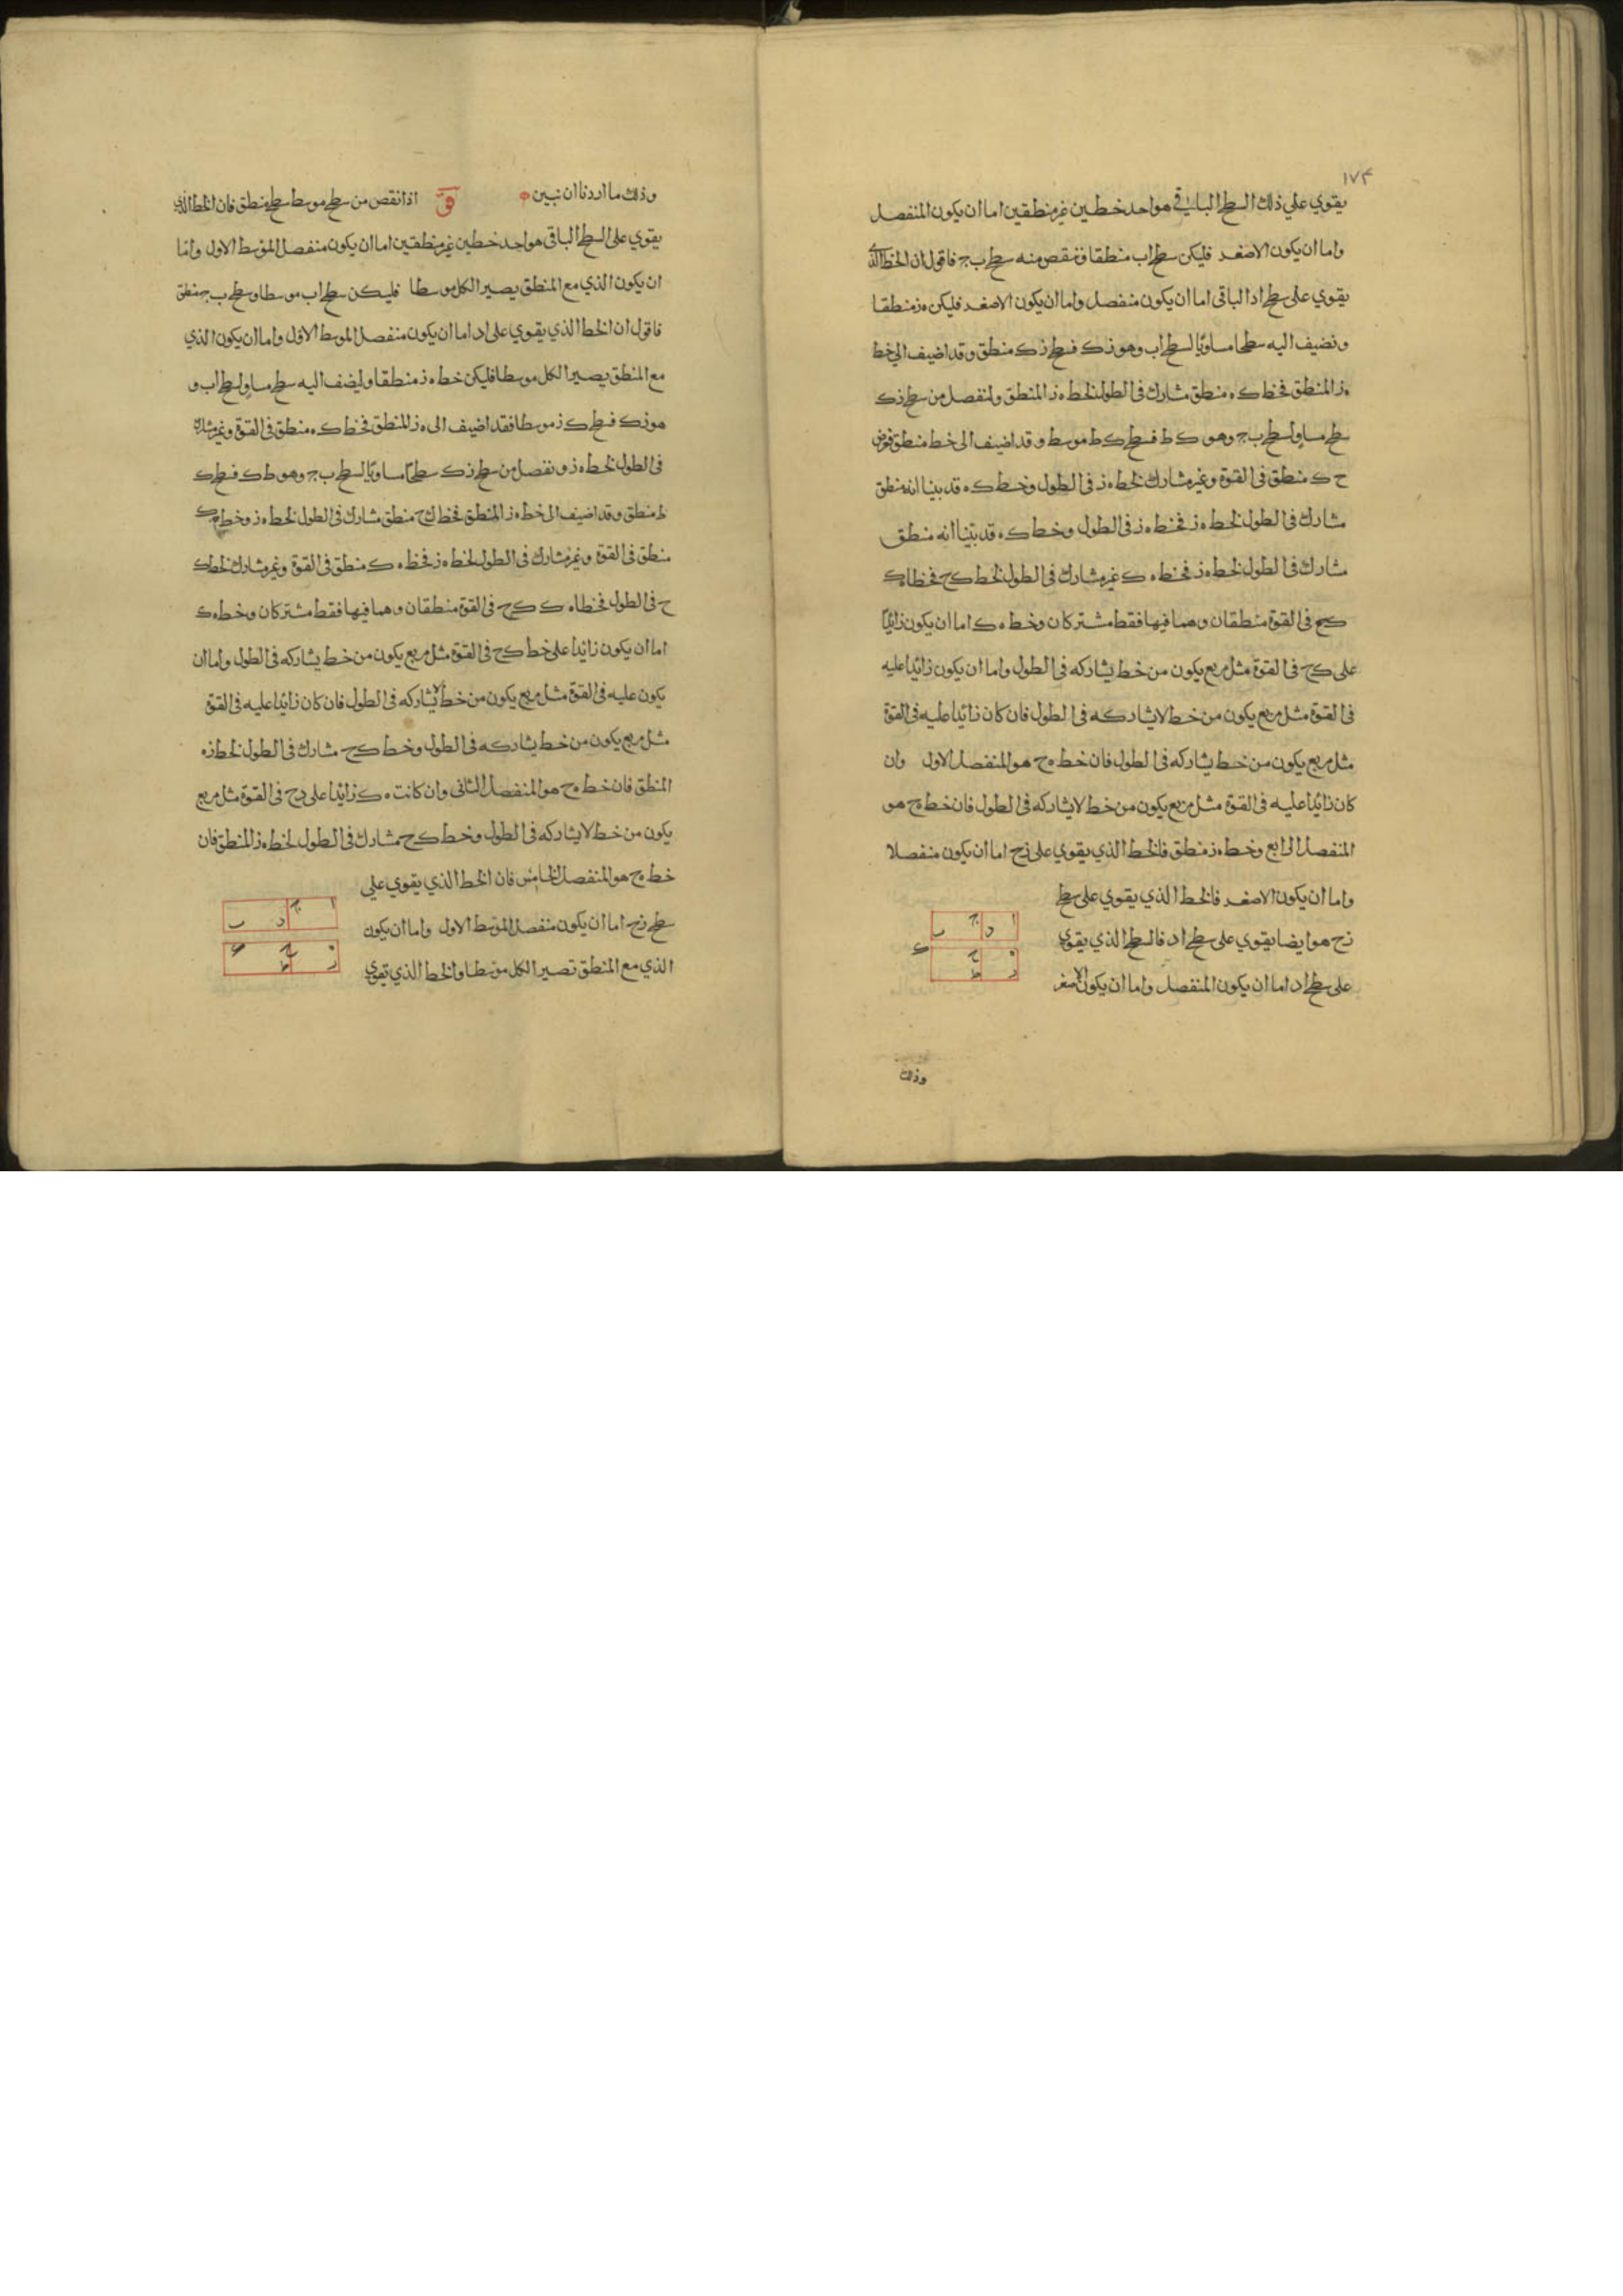 ١٧٤
يقوي علي ذلك السطح الباقي هو احد خطين غير منطقين اما ان يكون المنفصل
واما ان يكون الاصغر فليكن سطح اب منطقا و ننقص منه سطح ب ج فاقول ان الخط الذي
يقوي على سطح اد الباقى اما ان يكون منفصل واما ان يكون الاصغر فليكن ه ز منطقا
و نضيف اليه سطحا مساويا لسطح اب وهو ز ك فسطح ز ك منطق و قد اضيف الي خط
ه ز المنطق فخط ك ه منطق مشارك فى الطول لخط ه ز المنطق ولنفصل من سطح ز ك
سطح مساو لسطح ب ج وهو ك ط فسطح ك ط موسط و قد اضيف الى خط منطق فعرض
ح ك منطق فى القوة وغير مشارك لخط ه ز فى الطول وخط ك ه قد بينا انه منطق
مشارك فى الطول لخط ه ز فخط ه ز فى الطول وخط ك ه قد بيّنا انه منطق
مشارك فى الطول لخط ه ز فخط ه ك غير مشارك فى الطول لخط ك ح فخطا ه ك
ك ح فى القوة منطقان وهما فيها فقط مشتركان وخط ه ك اما ان يكون زائدًا
على ك ح فى القوة مثل مربع يكون من خط يشاركه فى الطول واما ان يكون زائدا عليه
فى القوة مثل مربع يكون من خط لا يشاركه فى الطول فان كان زائدا عليه فى القوة
مثل مربع يكون من خط يشاركه فى الطول فان خط ه ح هو المنفصل الاول وان
كان زائدا عليه فى القوة مثل مربع يكون من خط لا يشاركه فى الطول فان خط ه ح هو
المنفصل الرابع وخط ه ز منطق فالخط الذي يقوي على ز ح اما ان يكون منفصلا
واما ان يكون الاصغر فالخط الذي يقوي على سطح
ز ح هو ايضا يقوي على سطح اد فالسطح الذي يقوي
على سطح اد اما ان يكون المنفصل واما ان يكون الاصغر
ا د ج ب
ه ح ك
ز ط
وذلك
وذلك ما اردنا ان نبين ق اذا نقص من سطح موسط سطح منطق فان الخط الذي
يقوي على السطح الباقى هو احد خطين غير منطقين اما ان يكون منفصل الموسط الاول واما
ان يكون الذي مع المنطق يصير الكل موسطا فليكن سطح اب موسطا و سطح ب ج منطق
فاقول ان الخط الذي يقوي على اد اما ان يكون منفصل الموسط الاول واما ان يكون الذي
مع المنطق يصير الكل موسطا فليكن خط ه ز منطقا وليضف اليه سطح مساو لسطح اب و
هو ز ك فسطح ك ز موسطا فقد اضيف الى ه ز المنطق فخط ك ه منطق فى القوة وغير مشارك
فى الطول لخط ه ز و نفصل من سطح ز ك سطحًا مساويًا لسطح ب ج وهو ط ك فسطح ك
ط منطق وقد اضيف الى خط ه ز المنطق فخط ك ح منطق مشارك فى الطول لخط ه ز وخط ه ك
منطق فى القوة وغير مشارك فى الطول لخط ه ز فخط ه ك منطق فى القوة وغير مشارك لخط ك
ح فى الطول فخطا ه ك ك ح فى القوة منطقان وهما فيها فقط مشتركان وخط ه ك
اما ان يكون زائدا على خط ك ح فى القوة مثل مربع يكون من خط يشاركه فى الطول واما ان
يكون عليه فى القوة مثل مربع يكون من خط لا يشاركه فى الطول فان كان زائدا عليه فى القوة
مثل مربع يكون من خط يشاركه فى الطول وخط ك ح مشارك فى الطول لخط ز ه
المنطق فان خط ه ح هو المنفصل الثانى وان كانت ه ك زائدا على ح فى القوة مثل مربع
يكون من خط لا يشاركه فى الطول وخط ك ح مشارك فى الطول لخط ه ز المنطق فان
خط ه ح هو المنفصل الخامس فان الخط الذي يقوي على
سطح ز ح اما ان يكون منفصل الموسط الاول واما ان يكون
الذي مع المنطق تصير الكل موسطا والخط الذي تقوي
ا ج د ب
ه ح ك
ز ط